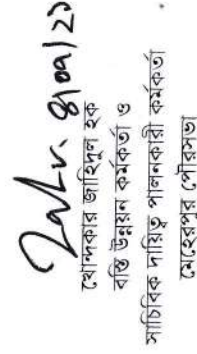 ৪/০৭/২১
খোন্দকার জাহিদুল হক
বস্তি উন্নয়ন কর্মকর্তা ও
সাচিবিক দায়িত্ব পালনকারী কর্মকর্তা
মেহেরপুর পৌরসভা